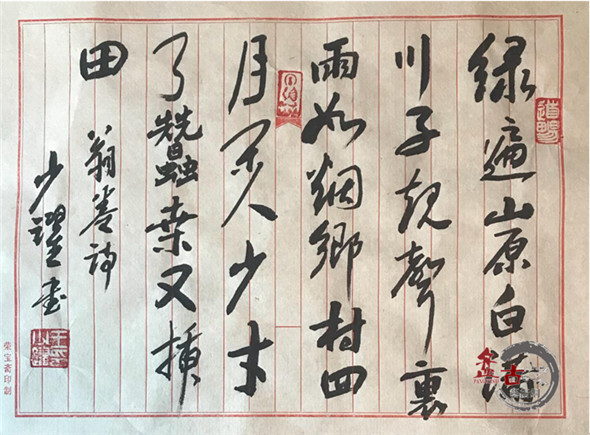 绿遍山原白满
川子规聲裏
雨如烟鄉村四
月閒人少才
了蠶桑又插
田 翁卷诗
少 书
荣宝斋印制
盘古